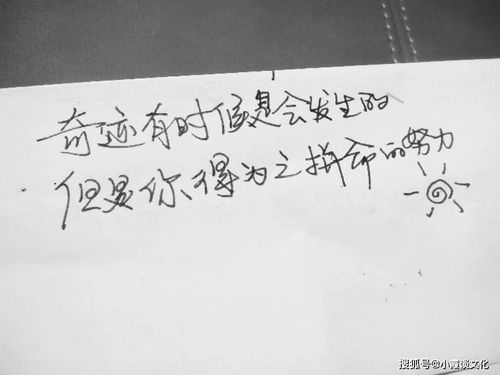 奇迹有时候是会发生的
但是你得为之拼命的努力
搜狐号@小霞谈文化